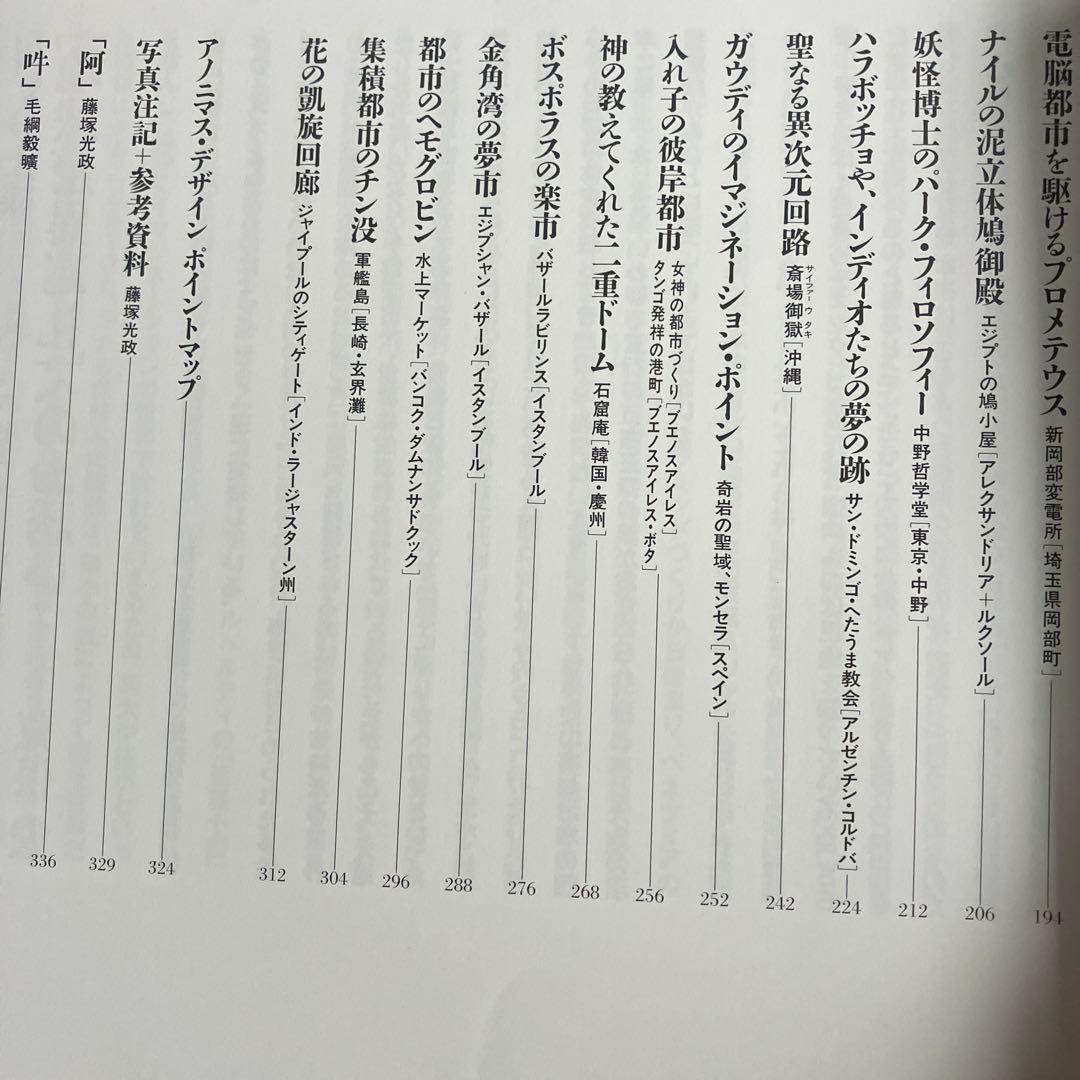 電脳都市を駆けるプロメテウス 新岡部変電所[埼玉県岡部町] 194
ナイルの泥立体鳩御殿 エジプトの鳩小屋[アレクサンドリア+ルクソール] 206
妖怪博士のパーク・フィロソフィー 中野哲学堂[東京・中野] 212
ハラボッチョや、インディオたちの夢の跡 サン・ドミンゴ・へたうま教会[アルゼンチン・コルドバ] 224
聖なる異次元回路 斎場御獄[沖縄] 242
サイファーウタキ
ガウディのイマジネーション・ポイント 奇岩の聖域、モンセラ[スペイン] 252
入れ子の彼岸都市 女神の都市づくり[ブエノスアイレス]
タンゴ発祥の港町[ブエノスアイレス・ボタ] 256
神の教えてくれた二重ドーム 石窟庵[韓国・慶州] 268
ボスポラスの楽市 バザールラビリンス[イスタンブール] 276
金角湾の夢市 エジプシャン・バザール[イスタンブール] 288
都市のヘモグロビン 水上マーケット[バンコク・ダムナンサドクック] 296
集積都市のチン没 軍艦島[長崎・玄界灘] 304
花の凱旋回廊 ジャイプールのシティゲート[インド・ラージャスターン州] 312
アノニマス・デザイン ポイントマップ 324
写真注記+参考資料 藤塚光政
「阿」 藤塚光政 329
「吽」 毛綱毅曠 336